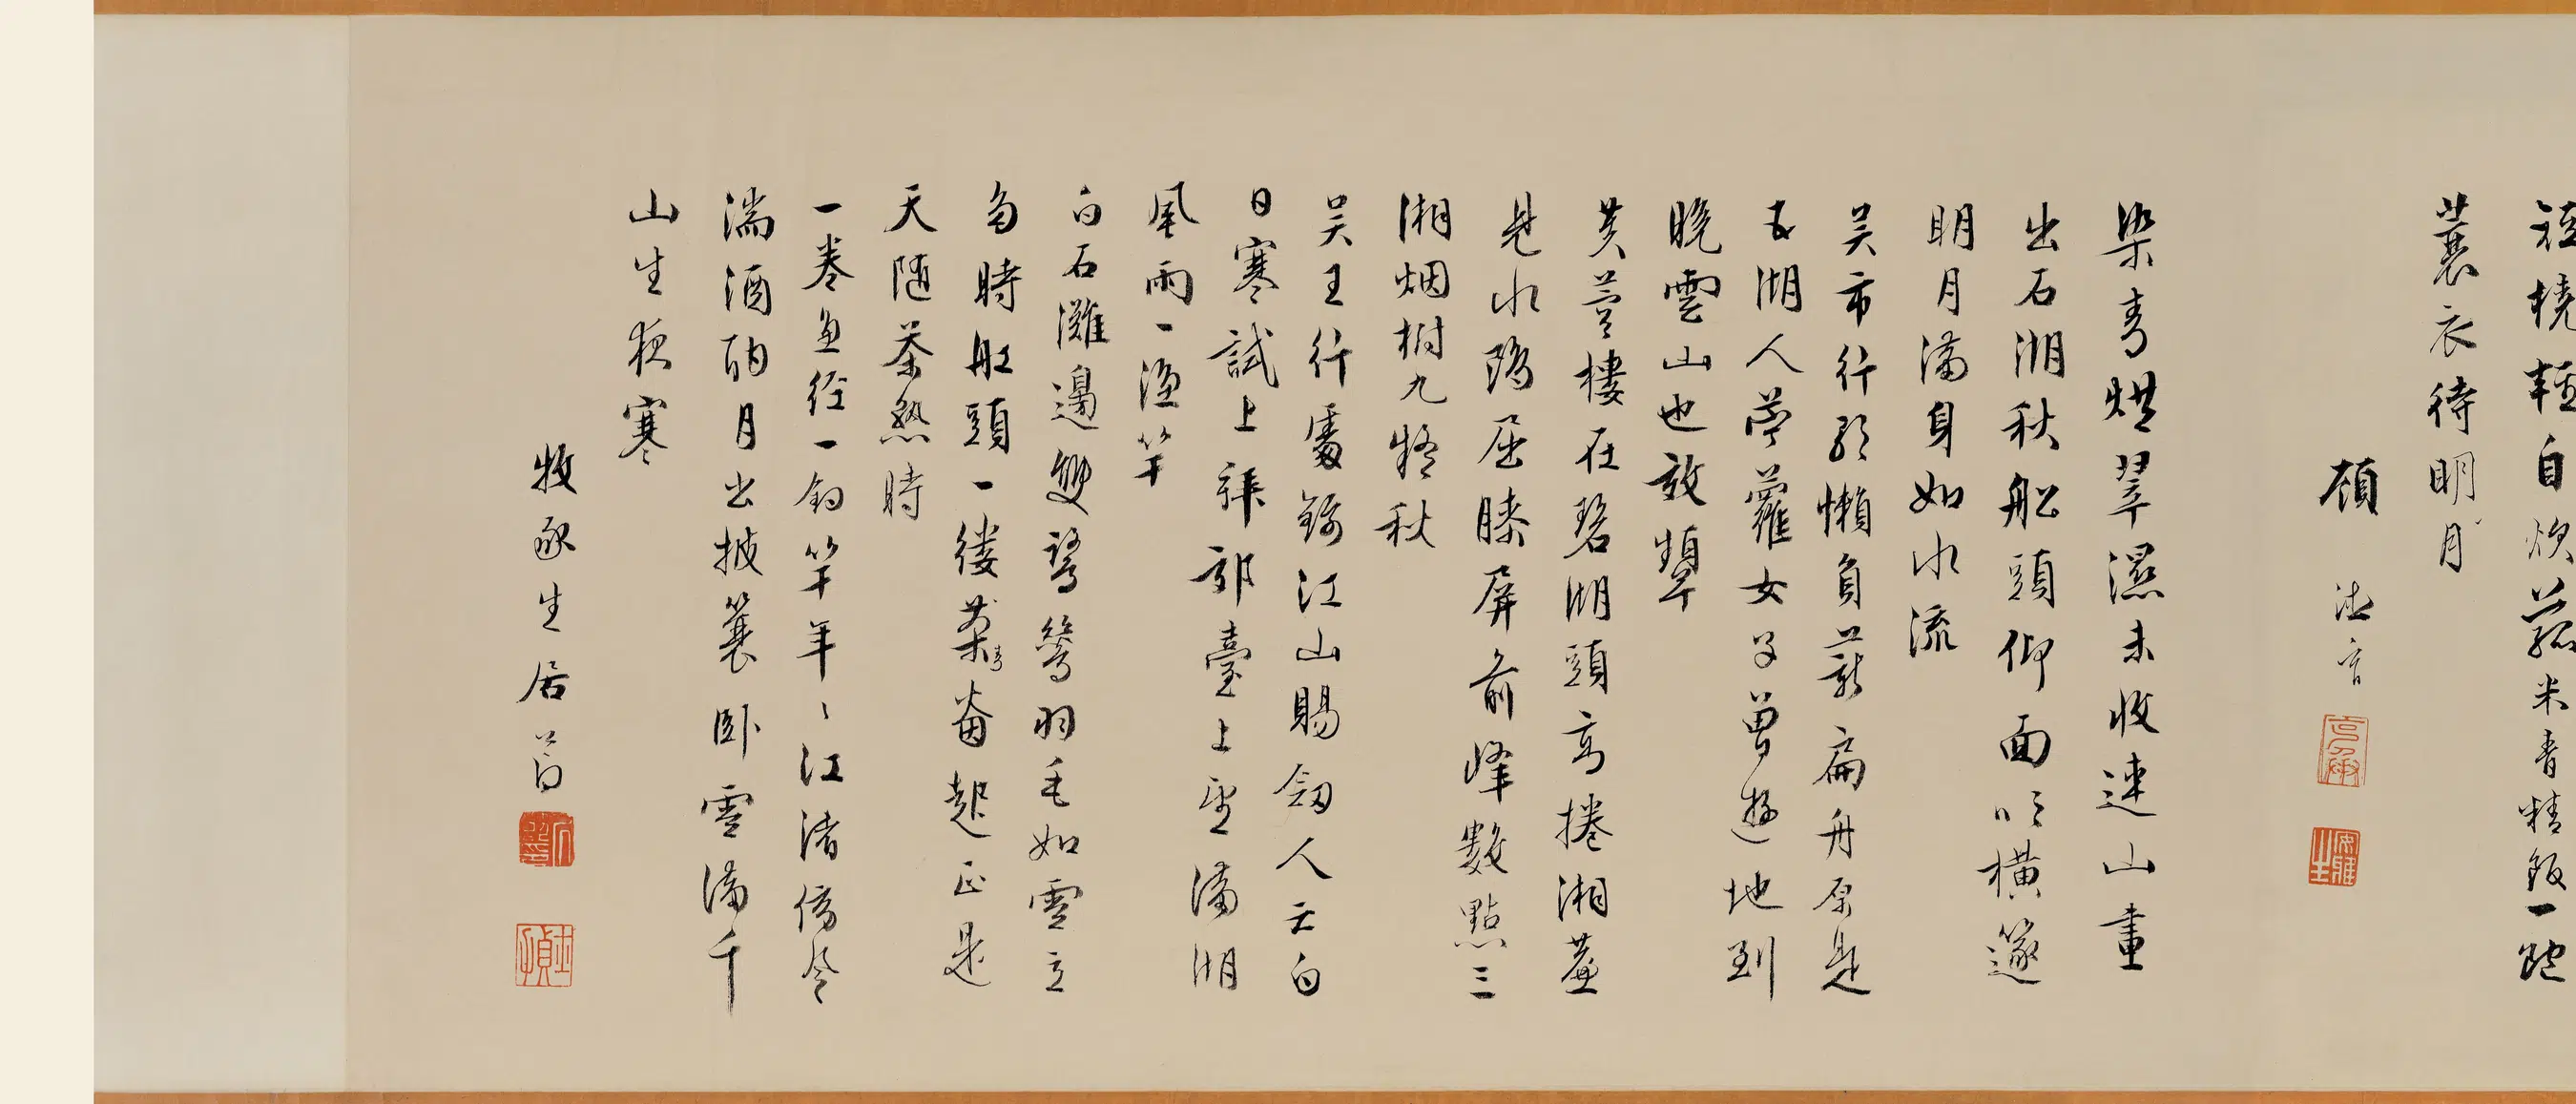 短橈輕自炊菰米青精飯一
蓑衣待明月
顧 德育
染青烘翠濕未收連山畫
出石湖秋船頭仰面吹橫篴
明月滿身如水流
吳市行歌懶負薪扁舟原是
五湖人苧蘿女子曾遊地到
晚雲山也效顰
芙蓉樓在碧湖頭高捲湘簾
見水鷗屈膝屏前峰數點三
湘烟樹九疑秋
吳王行處錦江山賜劒人亡白
日寒試上拜郊臺上望滿湖
風雨一漁竿
白石灘邊雙鷺鷥羽毛如雪立
多時船頭一縷茶青起正是
天隨茶熟時
一卷魚經一釣竿年〻江渚傍
濡酒酣月出披蓑臥雪滿千
山生夜寒
牧豕生居節